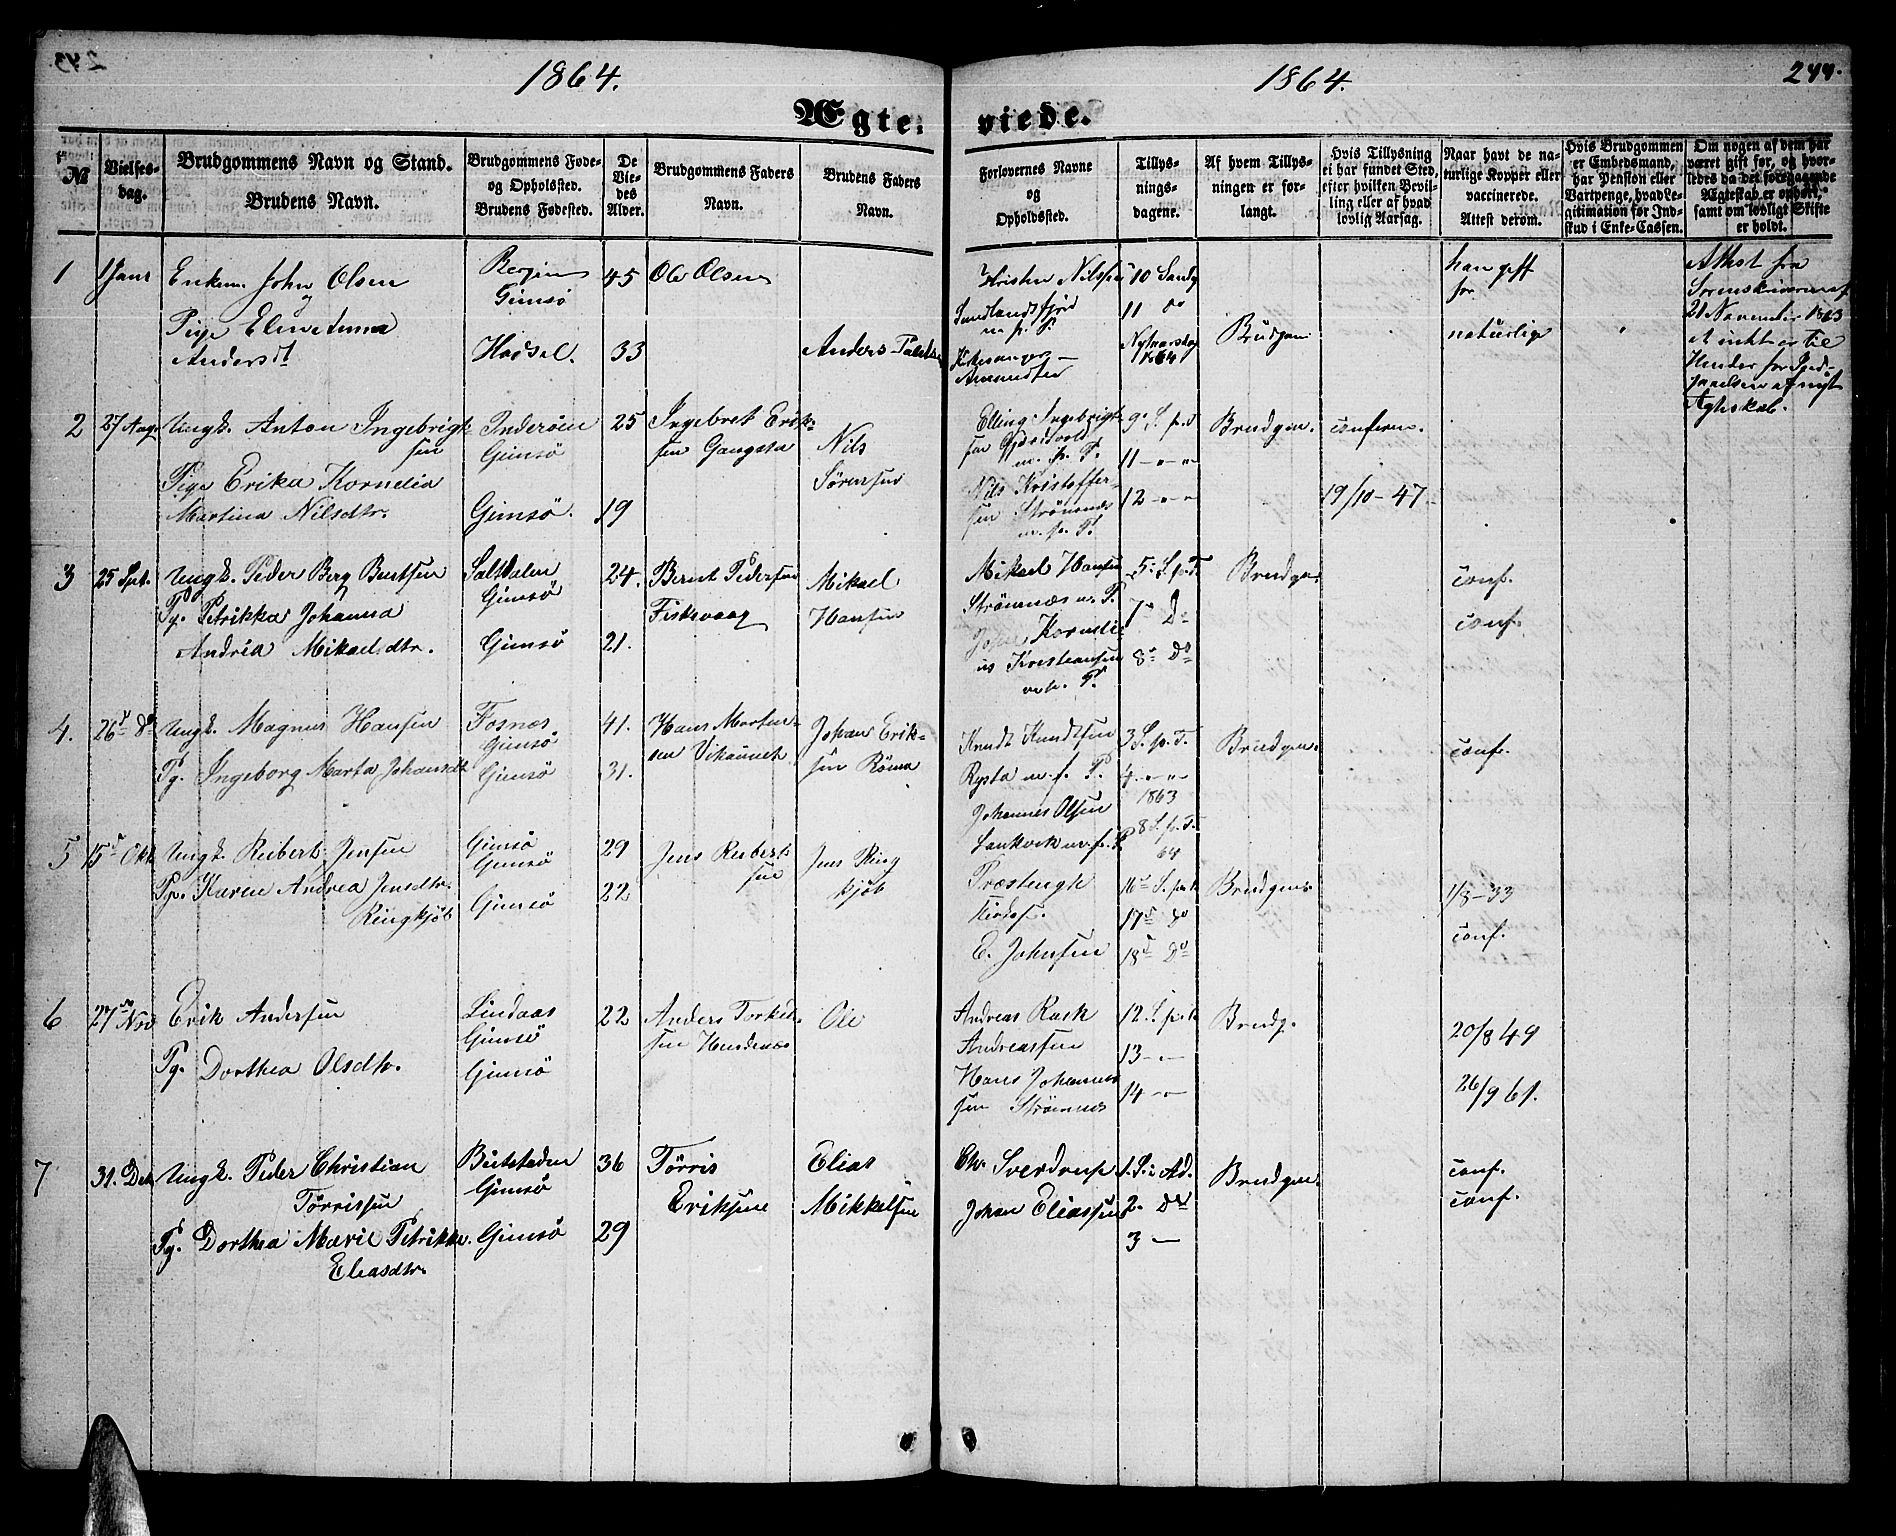 243
1864.
1864.
244.
Ægte-
viede.
№
Vielses-
dag.
Brudgommens Navn og Stand.
Brudens Navn.
Brudgommens Føde-
og Opholssted.
Brudens Fødested.
De
Vie-
des
Alder.
Brudgommens Faders
Navn.
Brudens Faders
Navn.
Forlovernes Navne
og
Opholdssted.
Tillys-
nings-
dagene.
Af hvem Tillys-
ningen er for-
langt.
Hvis Tillysning
ei har fundet Sted,
efter hvilken Bevil-
ling eller af hvad
lovlig Aarsag.
Naar havt de na-
turlige Kopper eller
vaccinerede.
Attest derom.
Hvis Brudgommen
er Embedsmand,
har Pension eller
Vartpenge, hvad Le-
gitimation for Ind-
skud i Enke-Cassen.
Om nogen af dem har
været gift før, og hvor-
ledes da det foregaaende
Ægteskab er ophørt,
samt om lovligt Skifte
er holdt.
1
1 Janr
Enkem. John Olsen
og
Pige Eline Anna
Andersdt
Gimsø
Hadsel.
45
33
Ole Olsen
Anders
Kristen Nilssen
Sundlandsfjord
m. f. P.
10 Søndg
11 do
Nytaarsdag
1864
Brudgom
han gift
før
naturlige
Attest fra
Sorenskriveren af
21 November 1863
at intet er til
Hinder for Ind-
gaaelsen af nyt
Ægteskab.
2
27 Aug.
Ungk. Anton Ingebrigt-
sen
Pige Erika Kornelia
Martina Nilsdtr.
Inderøen
Gimsø
Gimsø.
25
19
Ingebret Erik-
sen Gangsta
Nils
Sørensen
Elling Ingebrigt-
sen
m. f. P.
Nils Kristoffer-
sen Strømnæs
m. f. P.
9. S. p. T
11 - " - "
12 - " - "
Brudgom.
conferm.
19/10 - 47.
3
25 Spt.
Ungk. Peder Berg Berntsen
Pg. Petrikka Johanna
Andrea Mikaelsdtr.
Saltdalen
Gimsø
Gimsø
24.
21.
Bernt Pedersen
Fiskvaag
Mikael
Hansen
Mikael Hansen
Strømnæs m. P.
Kornelie
us Kristiansen
m. f. P.
5. S. p. T.
7 Do
8 Do
Brudgom.
conf.
conf.
4.
26 Do
Ungk. Magnus Hansen
Pg. Ingeborg Marta Johansdt
Fosnæs
Gimsø
Gimsø
41.
31.
Hans Morten-
sen
Johan Erik-
sen Røma
Knudt Knudtsen
Rysta m. f. P.
Johannes Olsen
3 S. p. T.
4. " "
1863
8 S. p. T.
64
Brudgom.
conf.
5
15 Okt
Ungk. Reibert Jensen
Pg. Karen Andrea Jensdtr.
Ringkjøb
Gimsø
Gimsø
Gimsø
29
22
Jens Reiberts
sen
Jens Ring
kjøb
E. Johnsen
16 S. p. tr.
17 do
18 Do
Brudgom.
1/8 - 33
conf.
6
27 Nov
Erik Andersen
Pg. Dorthea Olsdtr.
Lindaas
Gimsø
Gimsø
22
Anders Torkel-
sen
Ole
Andreas Rask
Andreassen
Hans Johannes
sen Strømnæs
12. S. p. tr.
13 - " -
14 - " -
Brudg.
20/8 49
26/9 61.
7
31. Dec
Ungk. Peder Christian
Tørrissen
Pg. Dorthea Marie Petrikke
Eliasdtr.
Beitstaden
Gimsø
Gimsø
36
29
Tørris
Eriksen
Elias
Mikkelsen
Chr. Sverdrup
Johan Eliassen
1. S. i Ad.
2. Do
3 -
Brudgom.
conf.
conf.